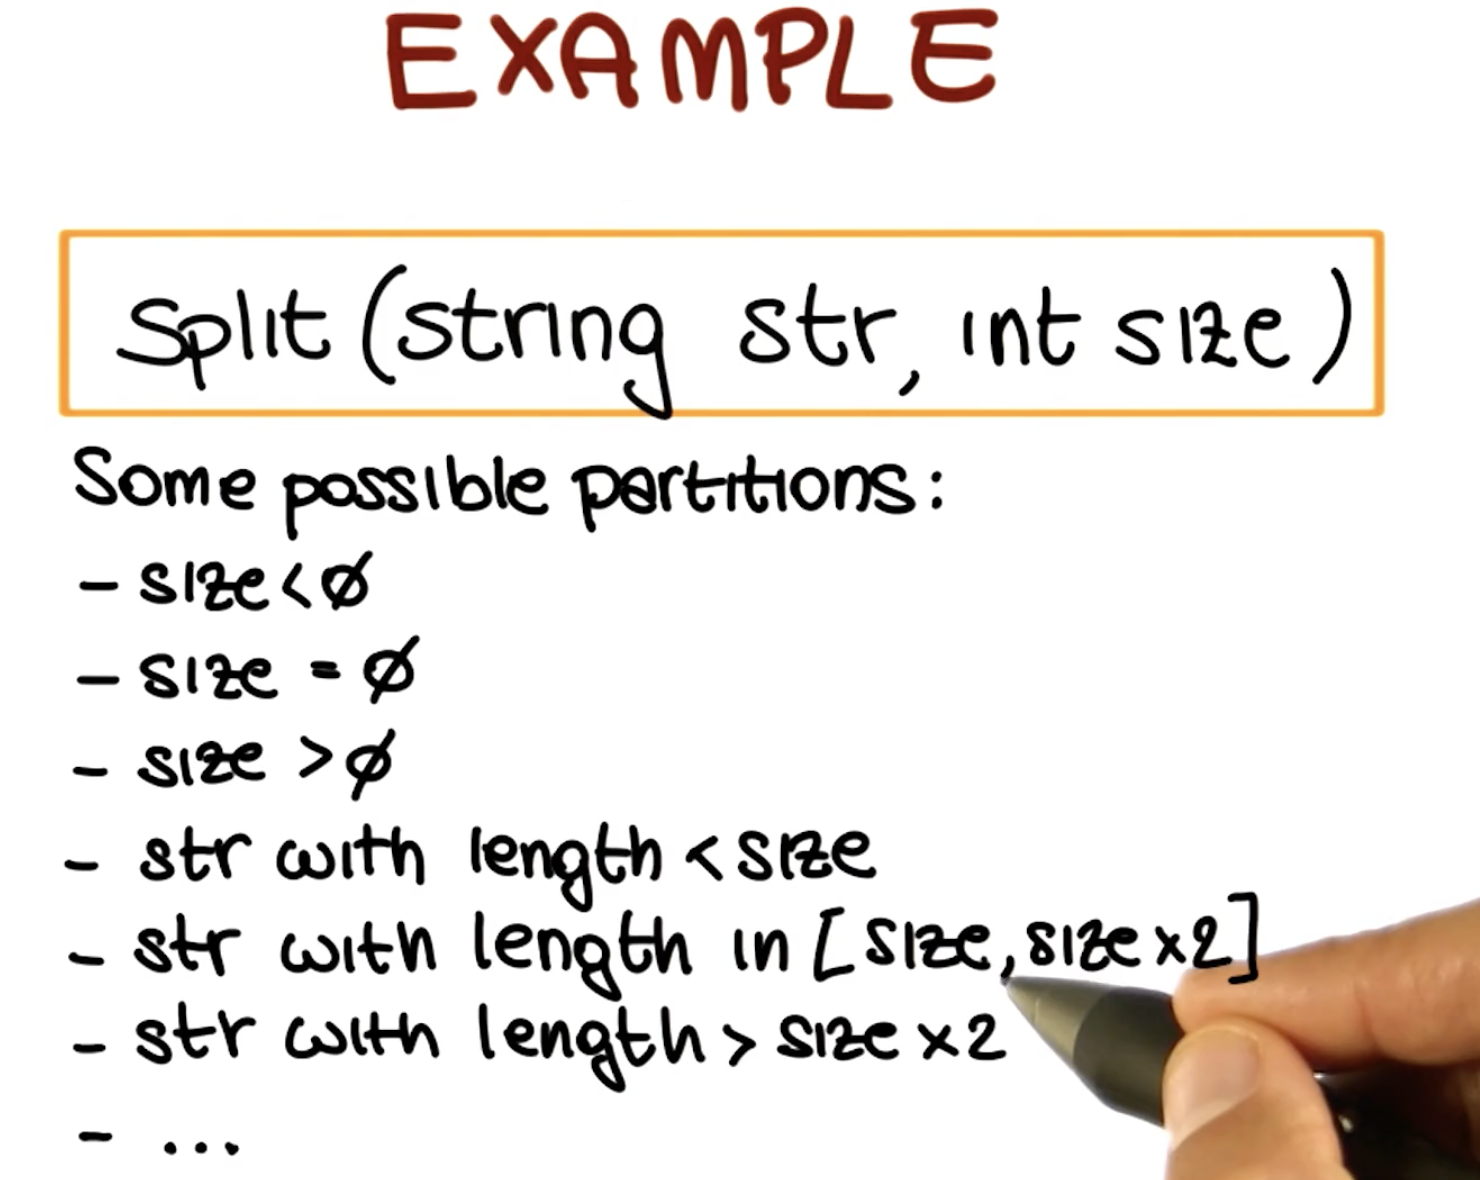 EXAMPLE
Split (string str, int size)
Some possible partitions:
- size < ∅
- size = ∅
- size > ∅
- str with length < size
- str with length in [size, size x 2]
- str with length > size x 2
- ...